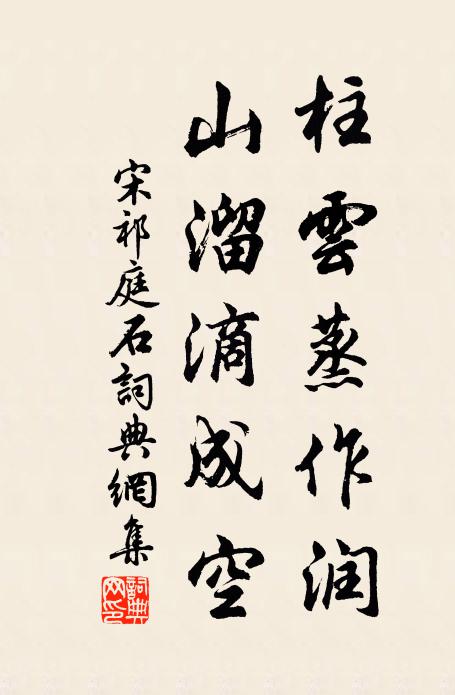 柱雲蒸作润
山溜滴成空
宋祁庭石詞典網集
詞典網印